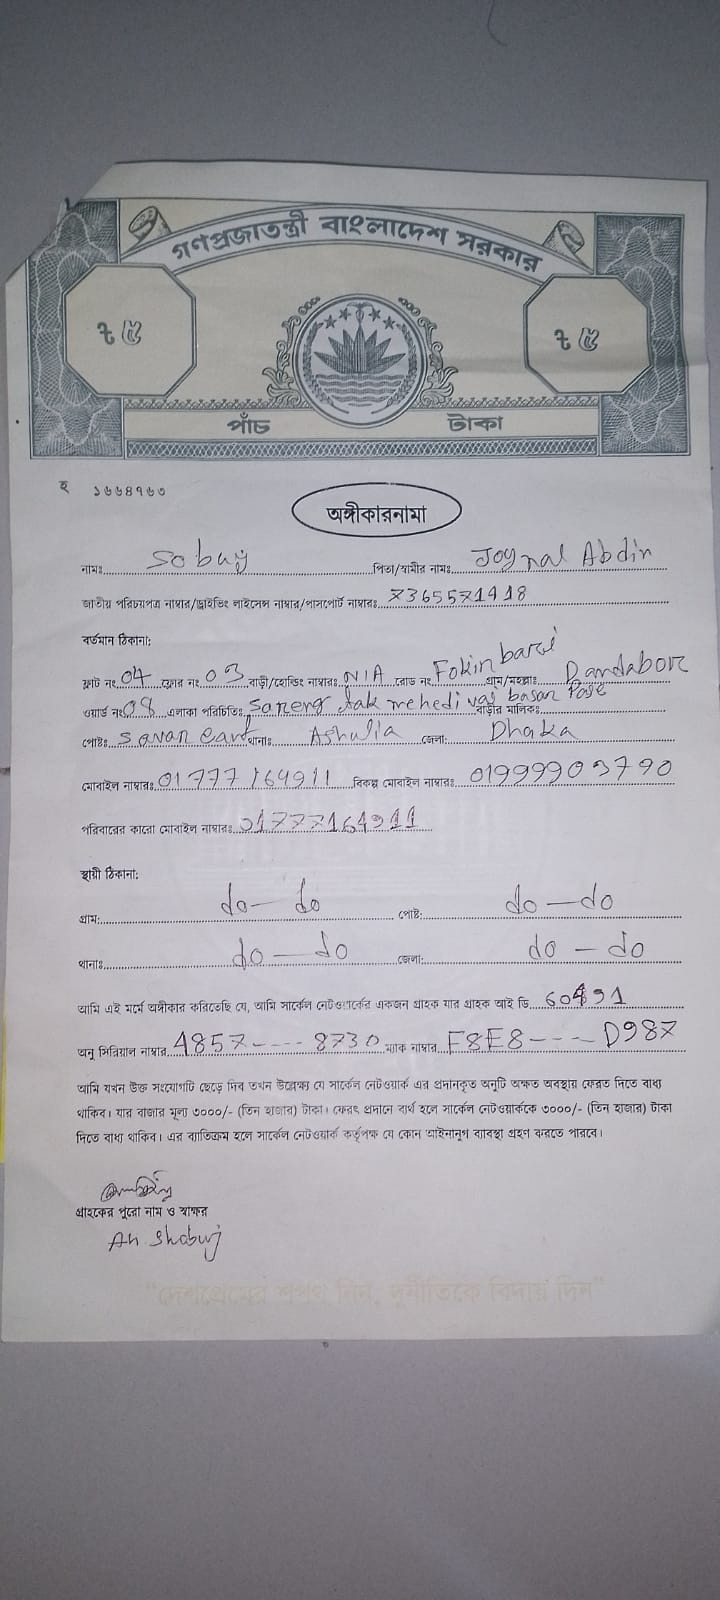 গণপ্রজাতন্ত্রী বাংলাদেশ সরকার
৳ ৫ ৳ ৫
পাঁচ টাকা
হ ১৬৬৪৭৬৩
অঙ্গীকারনামা
নামঃ Sobuj পিতা/স্বামীর নামঃ Joynal Abdin
জাতীয় পরিচয়পত্র নাম্বার/ড্রাইভিং লাইসেন্স নাম্বার/পাসপোর্ট নাম্বারঃ 7365571418
বর্তমান ঠিকানা:
ফ্লাট নং 04 ফ্লোর নং 03 বাড়ী/হোল্ডিং নাম্বারঃ N/A রোড নং Fokinbari গ্রাম/মহল্লাঃ Dandabor
ওয়ার্ড নং 08 এলাকা পরিচিতিঃ mehedi vai basar Pase বাড়ীর মালিকঃ
পোষ্টঃ থানাঃ Ashulia জেলা: Dhaka
মোবাইল নাম্বারঃ 01777164911 বিকল্প মোবাইল নাম্বারঃ 01999903790
পরিবারের কারো মোবাইল নাম্বারঃ 01777164911
স্থায়ী ঠিকানা:
গ্রাম: do — do পোষ্ট: do — do
থানাঃ do — do জেলা: do — do
আমি এই মর্মে অঙ্গীকার করিতেছি যে, আমি সার্কেল নেটওয়ার্কের একজন গ্রাহক যার গ্রাহক আই ডি. 60491
অনু সিরিয়াল নাম্বার 4857---- 8730 ম্যাক নাম্বার F8E8---- D987
আমি যখন উক্ত সংযোগটি ছেড়ে দিব তখন উল্লেক্ষ্য যে সার্কেল নেটওয়ার্ক এর প্রদানকৃত অনুটি অক্ষত অবস্থায় ফেরত দিতে বাধ্য
থাকিব। যার বাজার মূল্য ৩০০০/- (তিন হাজার) টাকা। ফেরৎ প্রদানে ব্যর্থ হলে সার্কেল নেটওয়ার্ককে ৩০০০/- (তিন হাজার) টাকা
দিতে বাধ্য থাকিব। এর ব্যতিক্রম হলে সার্কেল নেটওয়ার্ক কর্তৃপক্ষ যে কোন আইনানুগ ব্যাবস্থা গ্রহণ করতে পারবে।
গ্রাহকের পুরো নাম ও স্বাক্ষর
AH. Shobuj
"দেশপ্রেমের শপথ নিন, দুর্নীতিকে বিদায় দিন"